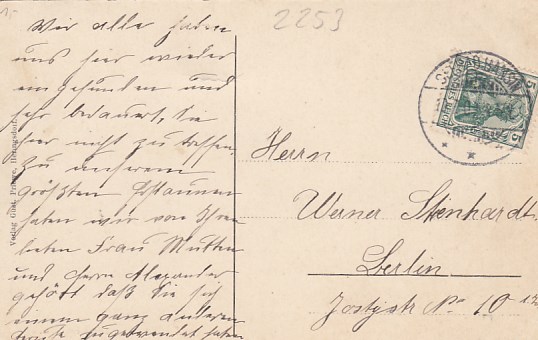 2253
Wir alle haben
uns hier wieder
eingefunden und
sehr bedauert, Sie
hier nicht zu treffen.
Zu unserem
größten Erstaunen
haben wir von Ihrer
lieben Frau Mutter
und Herrn Alexander
gehört daß Sie sich
einem ganz anderen
zugewendet haben
Herrn
Werner Steinhardt
Berlin
10
Verlag Gust.
5
5